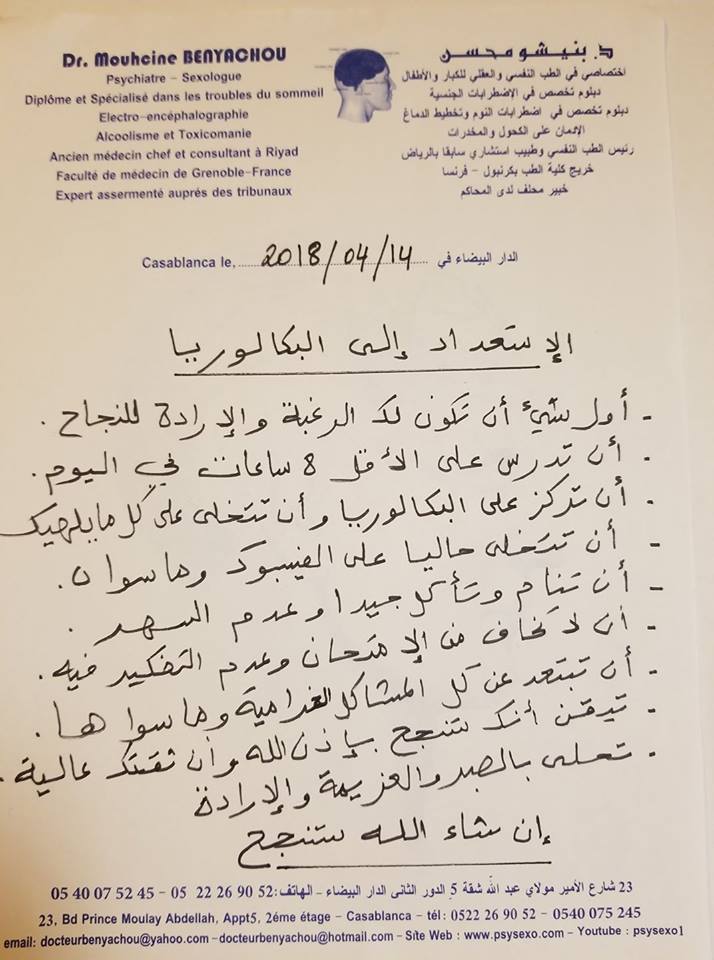 Dr. Mouhcine BENYACHOU
Psychiatre – Sexologue
Diplôme et Spécialisé dans les troubles du sommeil
Electro-encéphalographie
Alcoolisme et Toxicomanie
Ancien médecin chef et consultant à Riyad
Faculté de médecin de Grenoble-France
Expert assermenté auprés des tribunaux
د. بنيشو محسن
اختصاصي في الطب النفسي والعقلي للكبار والأطفال
دبلوم تخصص في الإضطرابات الجنسية
دبلوم تخصص في اضطرابات النوم وتخطيط الدماغ
الادمان على الكحول والمخدرات
رئيس الطب النفسي وطبيب استشاري سابقا بالرياض
خريج كلية الطب بكرنبول - فرنسا
خبير محلف لدى المحاكم
Casablanca le, 2018/04/14 الدار البيضاء في
الإستعداد إلى البكالوريا
- أول شيء أن تكون لك الرغبة والإرادة للنجاح .
- أن تدرس على الأقل 8 ساعات في اليوم .
- أن تركز على البكالوريا وأن تتخلى على كل مايلهيك
- أن تتخلى حاليا على الفيسبوك وماسواه .
- أن تنام وتأكل جيدا وعدم السهر .
- أن لا تخاف من الإمتحان وعدم التفكير فيه .
- أن تبتعد عن كل المشاكل الغرامية وماسواها .
- تيقن أنك ستنجح بإذن الله وأن ثقتك عالية .
- تحلى بالصبر والعزيمة والإرادة
إن شاء الله ستنجح
23 شارع الأمير مولاي عبد الله شقة 5 الدور الثاني الدار البيضاء - الهاتف: 52 90 26 22 05 - 45 52 07 40 05
23, Bd Prince Moulay Abdellah, Appt5, 2éme étage – Casablanca – tél : 0522 26 90 52 – 0540 075 245
email: docteurbenyachou@yahoo.com –docteurbenyachou@hotmail.com – Site Web : www.psysexo.com – Youtube : psysexo1